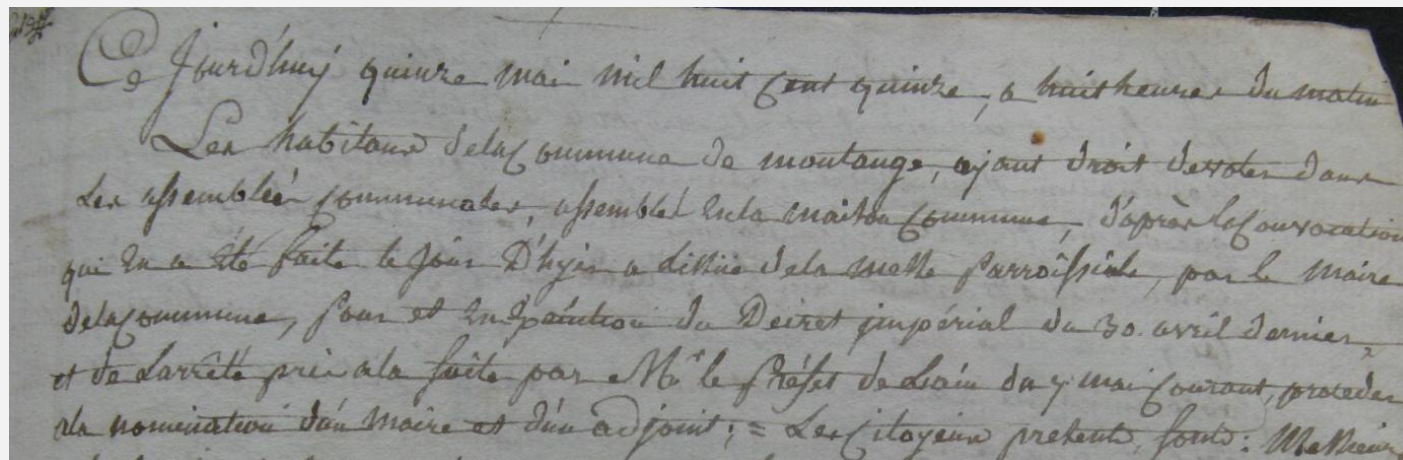 Ce Jourd'huy quinze mai mil huit Cent quinze, a huit heures du matin
Les habitans dela Commune de montange, ayant droit devoter dans
Les assembleés Communales, assemblés en la maison Commune, d'après la Convocation
qui en a été faite le jour D'hyer a lissüe dela messe Parroissiale, par le maire
dela Commune, pour et en Exécution du Décret impérial du 30. avril dernier,
et de Larrêté pris ala suite par Mr le Préfet de Lain du 7 mai Courant, proceder
ala nomination d'un maire et d'un adjoint; = Les Citoyens presents, sont: Messieurs